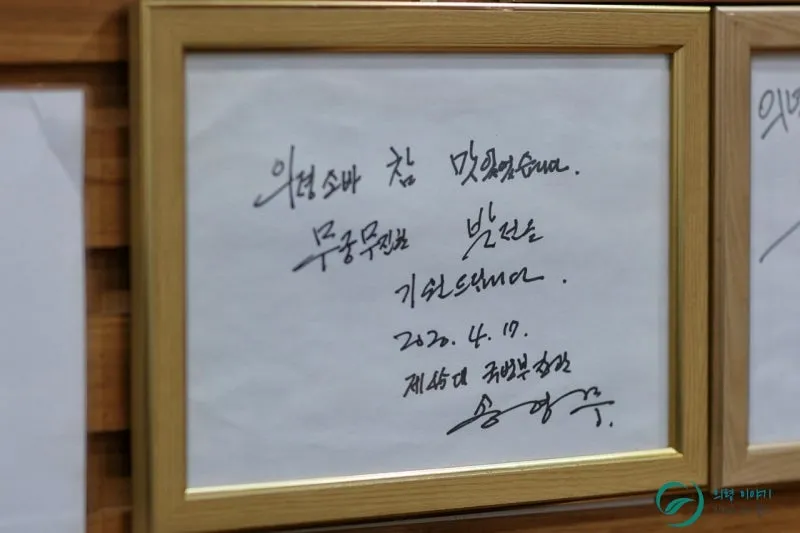 의령소바 참 맛있었습니다.
무궁무진한 발전을
기원드립니다.
2020. 4. 17.
제45대 국방부장관
송영무
의령
의령 이야기